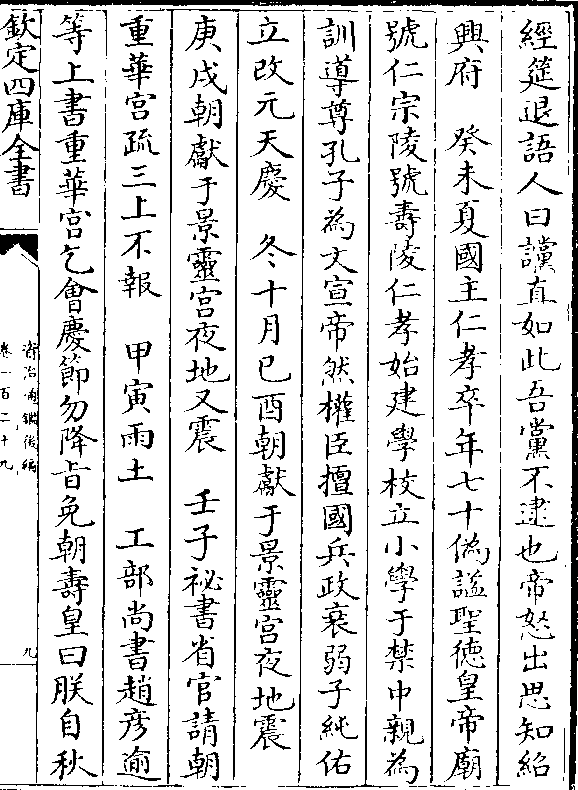 經筵退語人曰讜直如此吾黨不逮也帝怒出思知紹
興府　癸未夏國主仁孝卒年七十偽諡聖德皇帝廟
號仁宗陵號壽陵仁孝始建學校立小學于禁中親為
訓導尊孔子為文宣帝然權臣擅國兵政衰弱子純佑
立改元天慶　冬十月己酉朝獻于景靈宮夜地震
庚戌朝獻于景靈宮夜地又震　壬子祕書省官請朝
重華宮疏三上不報　甲寅雨土　工部尚書趙彥逾
等上書重華宮乞會慶節勿降旨免朝壽皇曰朕自秋
欽定四庫全書
資治通鑑後編
卷一百二十九
九